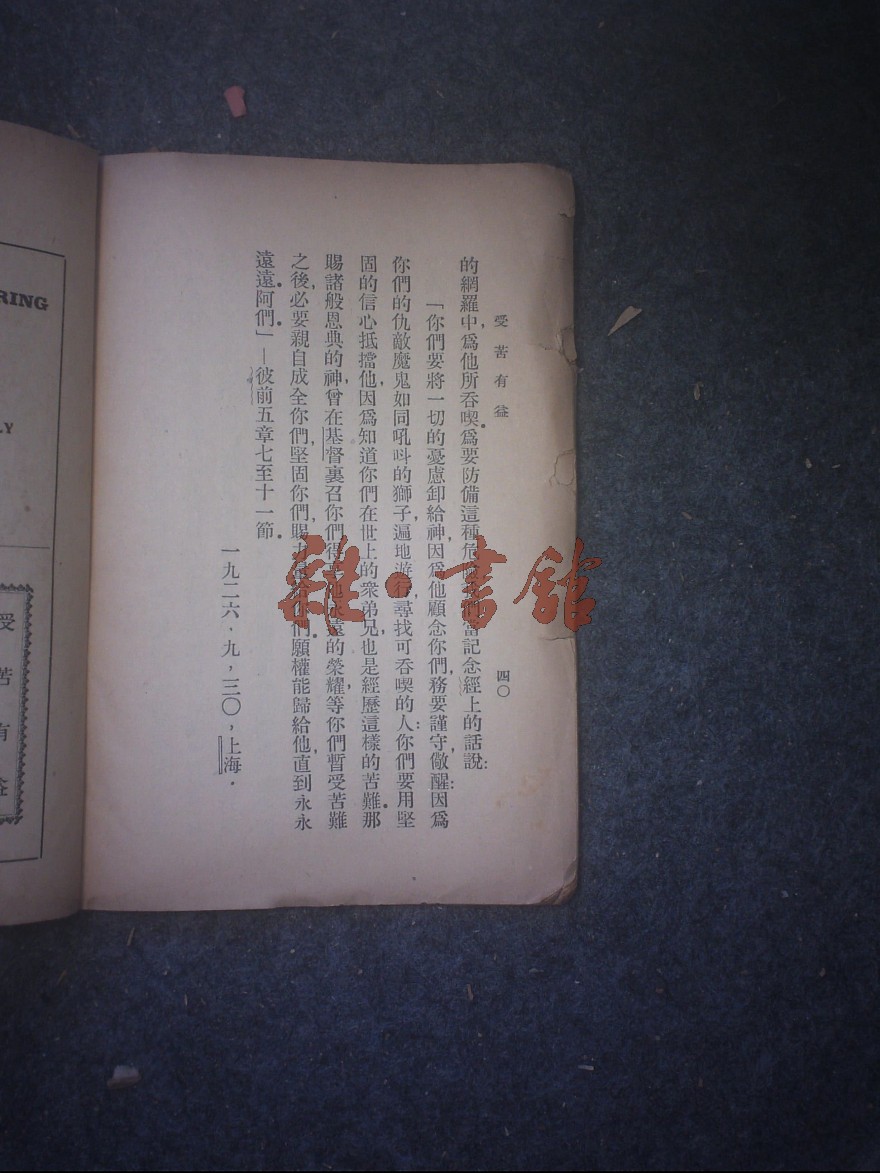 受苦有益
四〇
的網羅中，爲他所吞喫。爲要防備這種危險我們當記念經上的話說：
「你們要將一切的憂慮卸給神，因爲他顧念你們，務要謹守，儆醒：因爲
你們的仇敵魔鬼如同吼叫的獅子，遍地游行，尋找可吞喫的人：你們要用堅
固的信心抵擋他，因爲知道你們在世上的衆弟兄，也是經歷這樣的苦難。那
賜諸般恩典的神，曾在基督裏召你們得他永遠的榮耀，等你們暫受苦難
之後，必要親自成全你們，堅固你們，賜力量給你們。願權能歸給他，直到永永
遠遠。阿們。」—彼前五章七至十一節。
一九二六．九，三〇，上海．
雜·書館
RING
LY
受苦有益